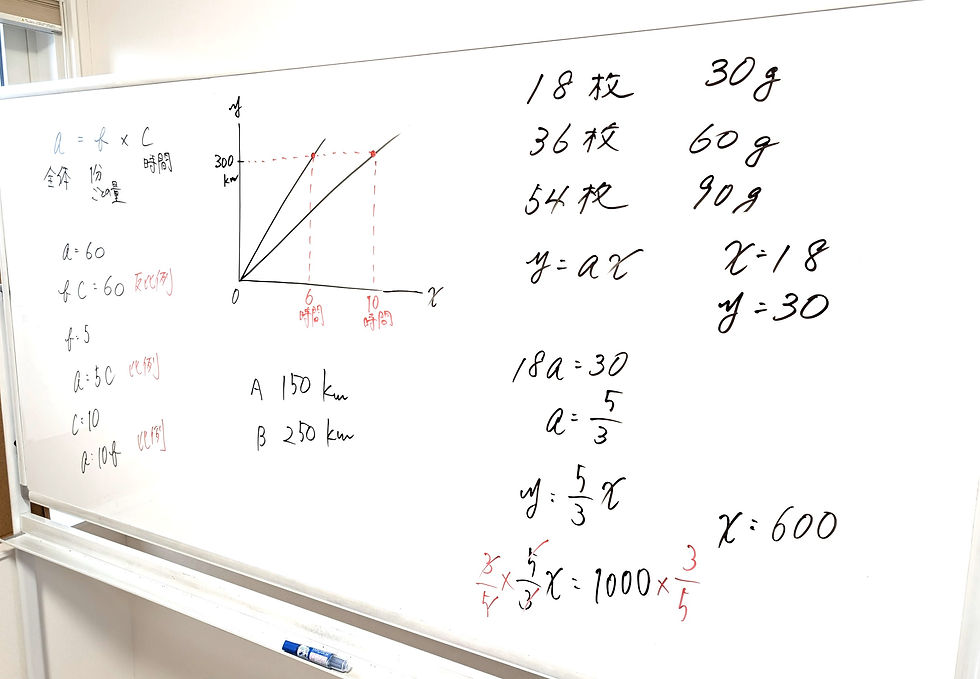 a = b × C
全体 1分ごとの量 時間
a=60
bC=60 反比例
b=5
a=5C 比例
C=10
a=10b 比例
y
300
km
0
6
時間
10
時間
x
A 150 km
B 250 km
18枚 30g
36枚 60g
54枚 90g
y=ax x=18
y=30
18a=30
a=5/3
y=5/3x
x=600
3/5×5/3x=1000×3/5